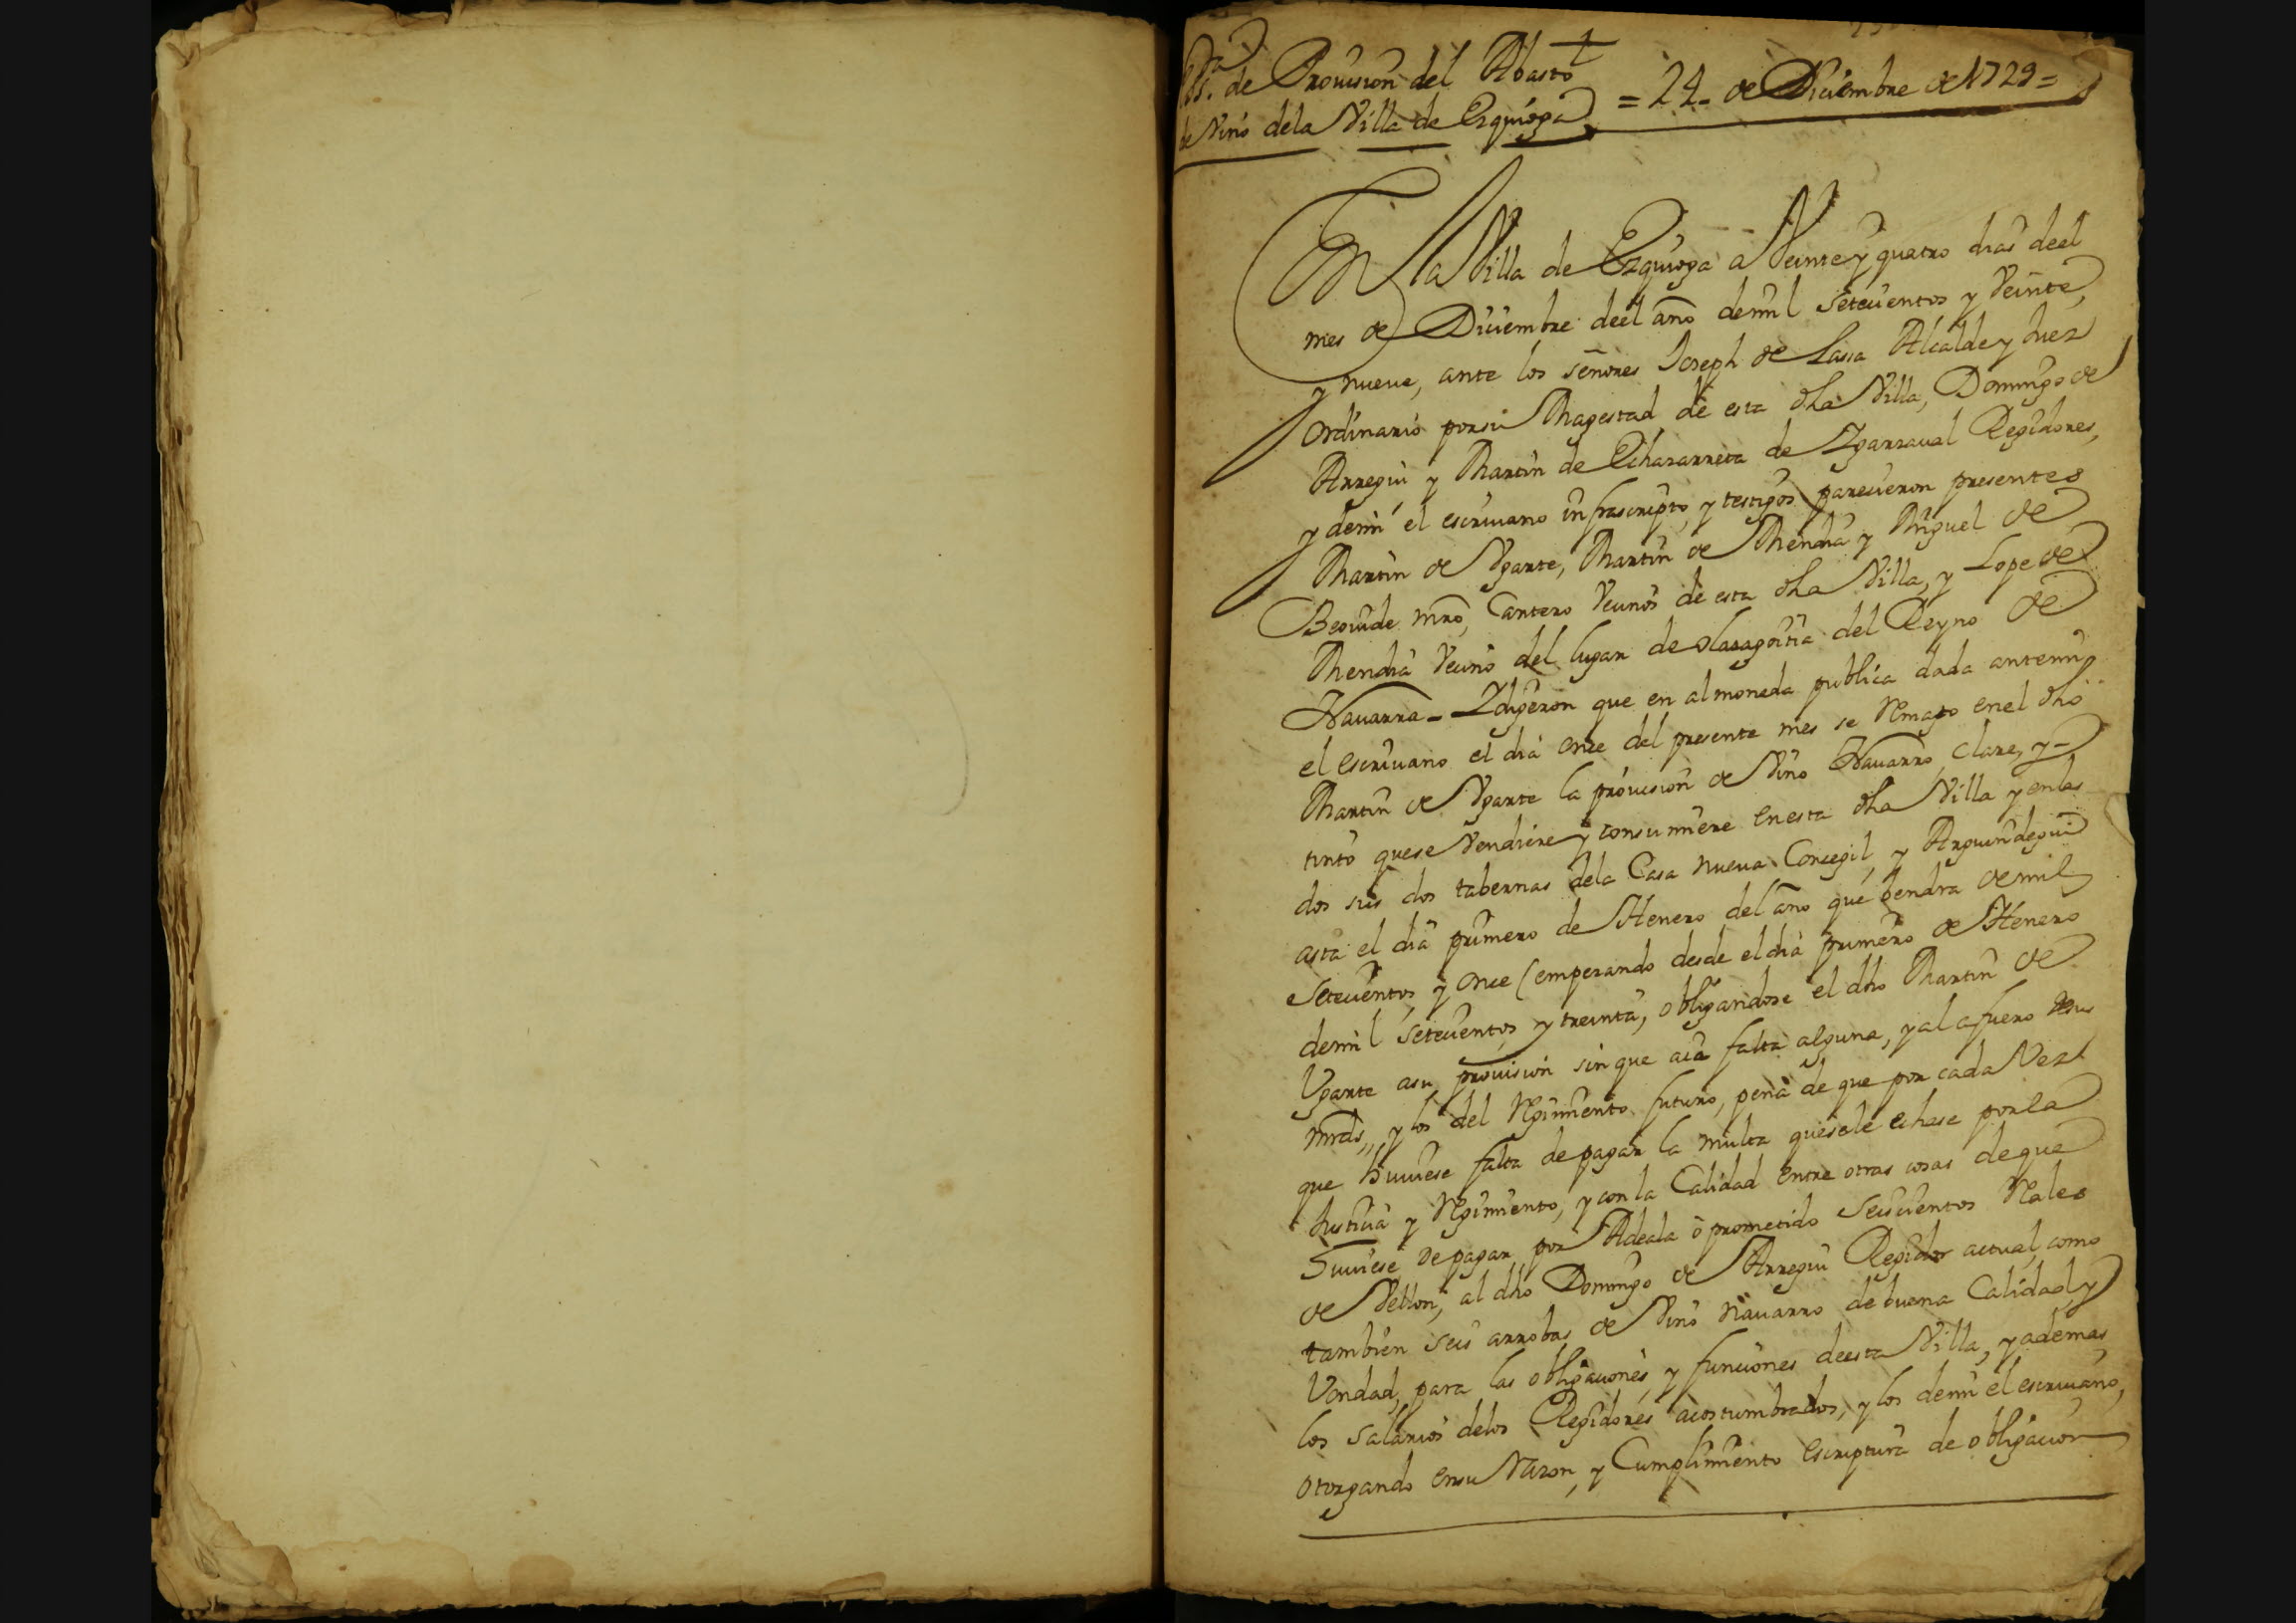 de Provision del Abasto
de Vino dela Villa de Ezquioga = 24 de Diciembre de 1729 =
En la Villa de Ezquioga a Veinte y quatro dias deel
mes de Diciembre deel año demil setecientos y Veinte,
y nueve, ante los señores Joseph de Lassa Alcalde y Juez
ordinario porsu Magestad de esta dha Villa, Domingo de
Arregui y Martin de Echazarreta de Ygarzaval Regidores,
y demi el escrivano infrascripto, y testigos parecieron presentes
Martin de Vgarte, Martin de Mendia y Miguel de
Beovide mro, Cantero Vecinos de esta dha Villa, y Lope de
Mendia Vecino del lugar de olazagoitia del Reyno de
Navarra = Ydigeron que en almoneda publica dada antemi
el escrivano el dia once del presente mes se Remato enel dho
Martin de Vgarte la provision de Vino Navarro, clare, y
tinto quese Vendiere y consumiere enesta dha Villa y enlas
dos sus dos tabernas dela Casa nueva Concegil, y Arguindegui
asta el dia primero de Henero del año que bendra de mil
setecientos y once (empezando desde el dia primero de Henero
demil setecientos y treinta, obligandose el dho Martin de
Vgarte asu provision sin que aia falta alguna, y al afuero desus
mrds, y los del Regimiento futuro, pena de que por cada Vez
que huviese falta de pagar la multa quesele echase porla
Justicia y Regimiento, y con la Calidad entre otras cosas de que
huviese de pagar por Adeala o prometido Seiscientos Reales
de Vellon, al dho Domingo de Arregui Regidor actual, como
tambien seis arrobas de Vino navarro de buena Calidad, y
Vondad, para las obligaciones y funciones deesta Villa, y ademas,
los salarios delos Regidores acostumbrados, y los demi el escrivano,
otorgando ensu Razon, y Cumplimiento escriptura de obligacion